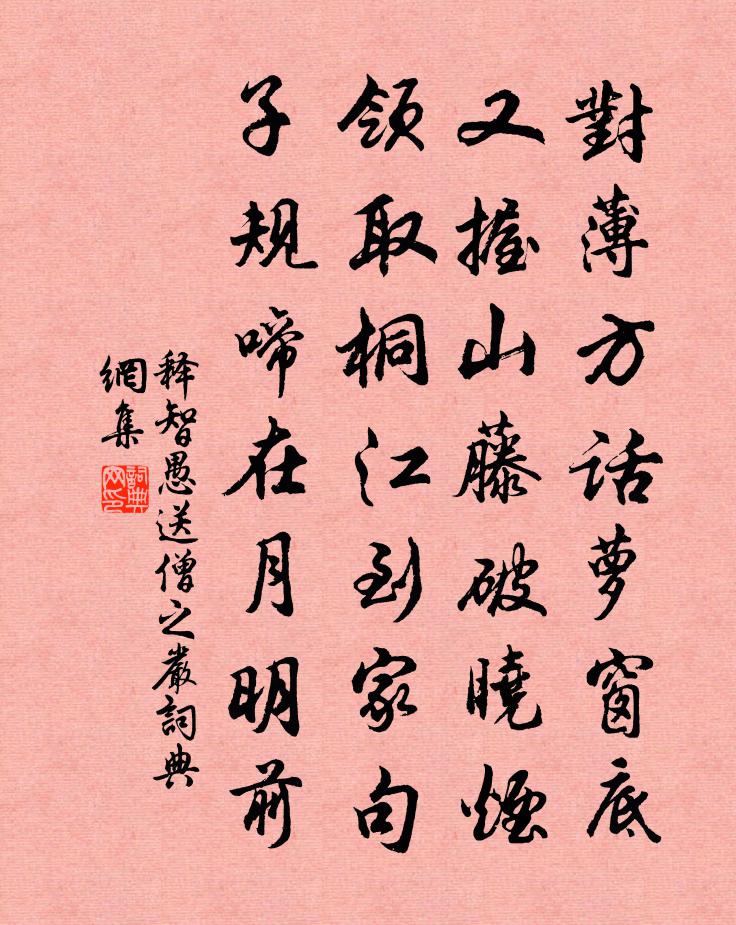 對薄方話萝窗底
又握山藤破曉煙
領取桐江到家句
子規啼在月明前
释智愚送僧之嚴詞典
網集
詞典
网印